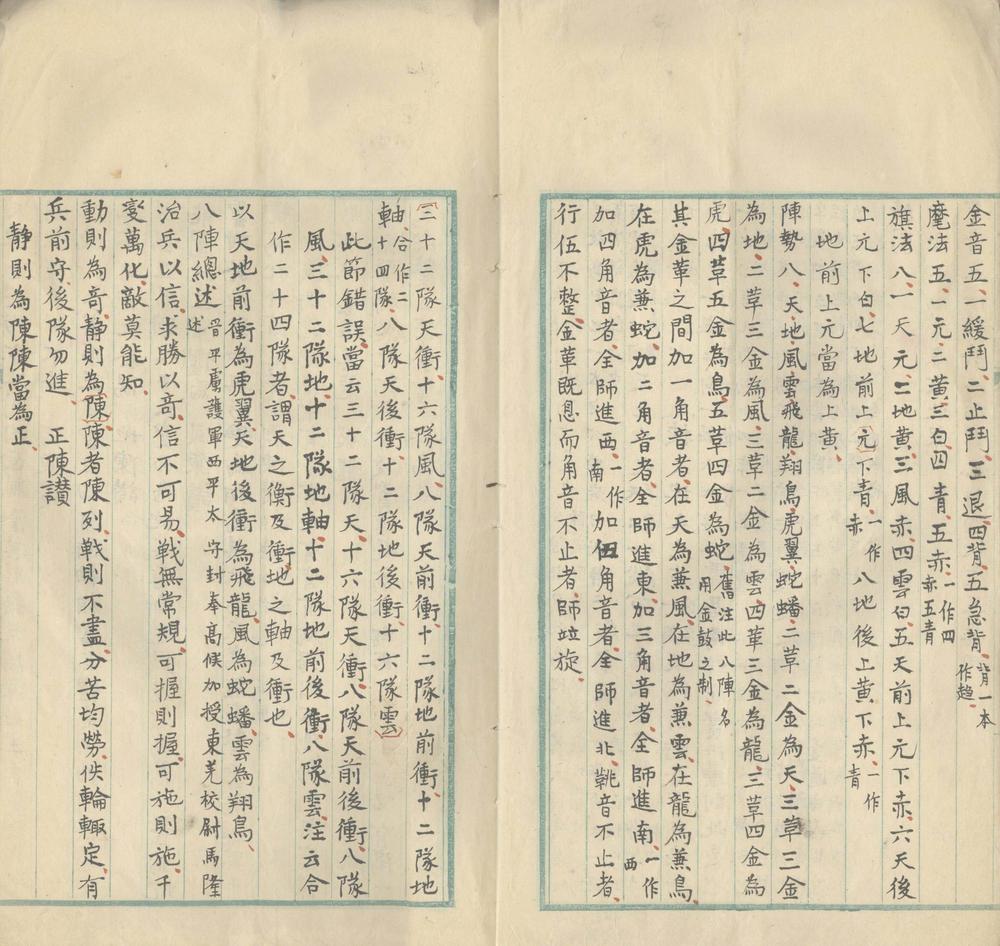 金音五、一緩鬥、二止鬥、三退、四背、五急背、背一本作趨、
麾法五、一元、二黃、三白、四青、五赤、一作四赤五青
旗法八、一天元、二地黃、三風赤、四雲白、五天前上元下赤、六天後
上元下白、七地前上元下青、一作赤八地後上黃下赤、一作青
地前上元當為上黃、
陣勢八、天、地、風、雲、飛龍、翔鳥、虎翼、蛇蟠、二革二金為天、三革三金
為地、二革三金為風、三革二金為雲、四革三金為龍、三革四金為
虎、四革五金為鳥、五革四金為蛇、舊注此八陣名用金鼓之制、
其金革之間加一角音者、在天為兼風、在地為兼雲、在龍為兼鳥、
在虎為兼蛇、加二角音者全師進東、加三角音者、全師進南、一作西
加四角音者、全師進西、一作南加伍角音者、全師進北、鞉音不止者、
行伍不整、金革既息而角音不止者、師竝旋、
三十二隊天衝、十六隊風、八隊天前衝、十二隊地前衝、十二隊地
軸、合作二十四隊、八隊天後衝、十二隊地後衝、十六隊雲、
此節錯誤、當云三十二隊天、十六隊天衝、八隊天前後衝、八隊
風、三十二隊地、十二隊地軸、十二隊地前後衝、八隊雲、注云合
作二十四隊者、謂天之衡及衝地之軸及衝也、
以天地前衝為虎翼、天地後衝為飛龍、風為蛇蟠、雲為翔鳥、
八陣總述 晉平虜護軍西平太守封奉高候加授東羌校尉馬隆述
治兵以信、求勝以奇、信不可易、戰無常規、可握則握、可施則施、千
變萬化、敵莫能知、
動則為奇、靜則為陳、陳者陳列、戰則不盡、分苦均勞、佚輪輙定、有
兵前守、後隊勿進、 正陳讚
靜則為陳、陳當為正、